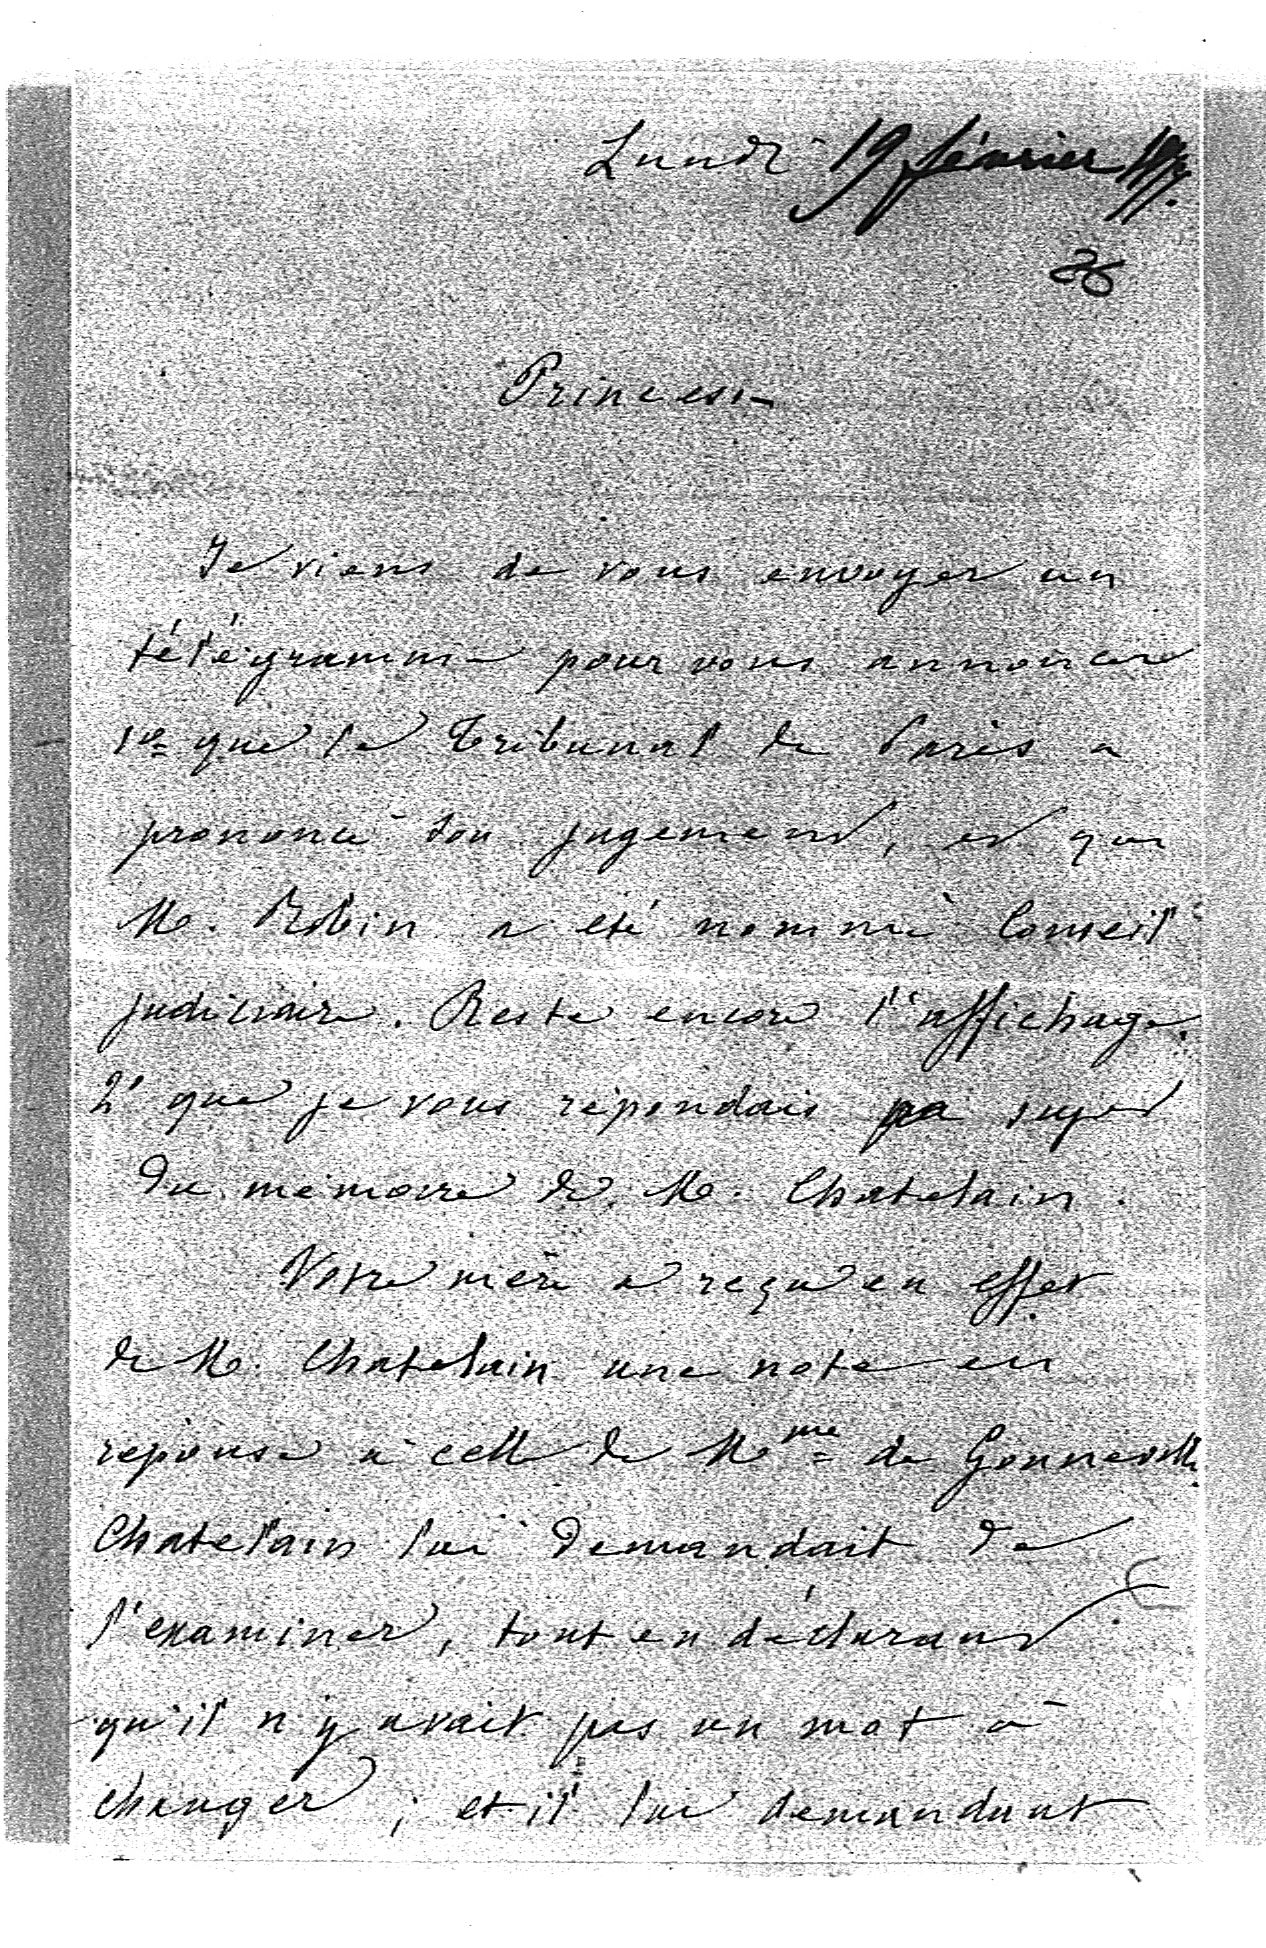 Lundi 19 février
36
Princesse
Je viens de vous envoyer un
télégramme pour vous annoncer
1º que le Tribunal de Paris a
prononcé son jugement, et que
M. Robin a été nommé Conseil
judiciaire. Reste encore l'affichage.
2º que je vous répondais au sujet
du mémoire de M. Chatelain.
Votre mère a reçu en effet
de M. Chatelain une note en
réponse à celle de Mme de Gonneville
Chatelain lui demandait de
l'examiner, tout en déclarant
qu'il n'y avait pas un mot à
changer ; et il lui demandant